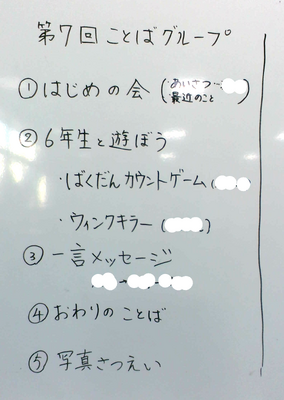 第7回 ことばグループ
① はじめの会 (あいさつ…
最近のこと )
② 6年生と遊ぼう
・ばくだんカウントゲーム ( )
・ウィンクキラー ( )
③ 一言メッセージ
④ おわりのことば
⑤ 写真さつえい